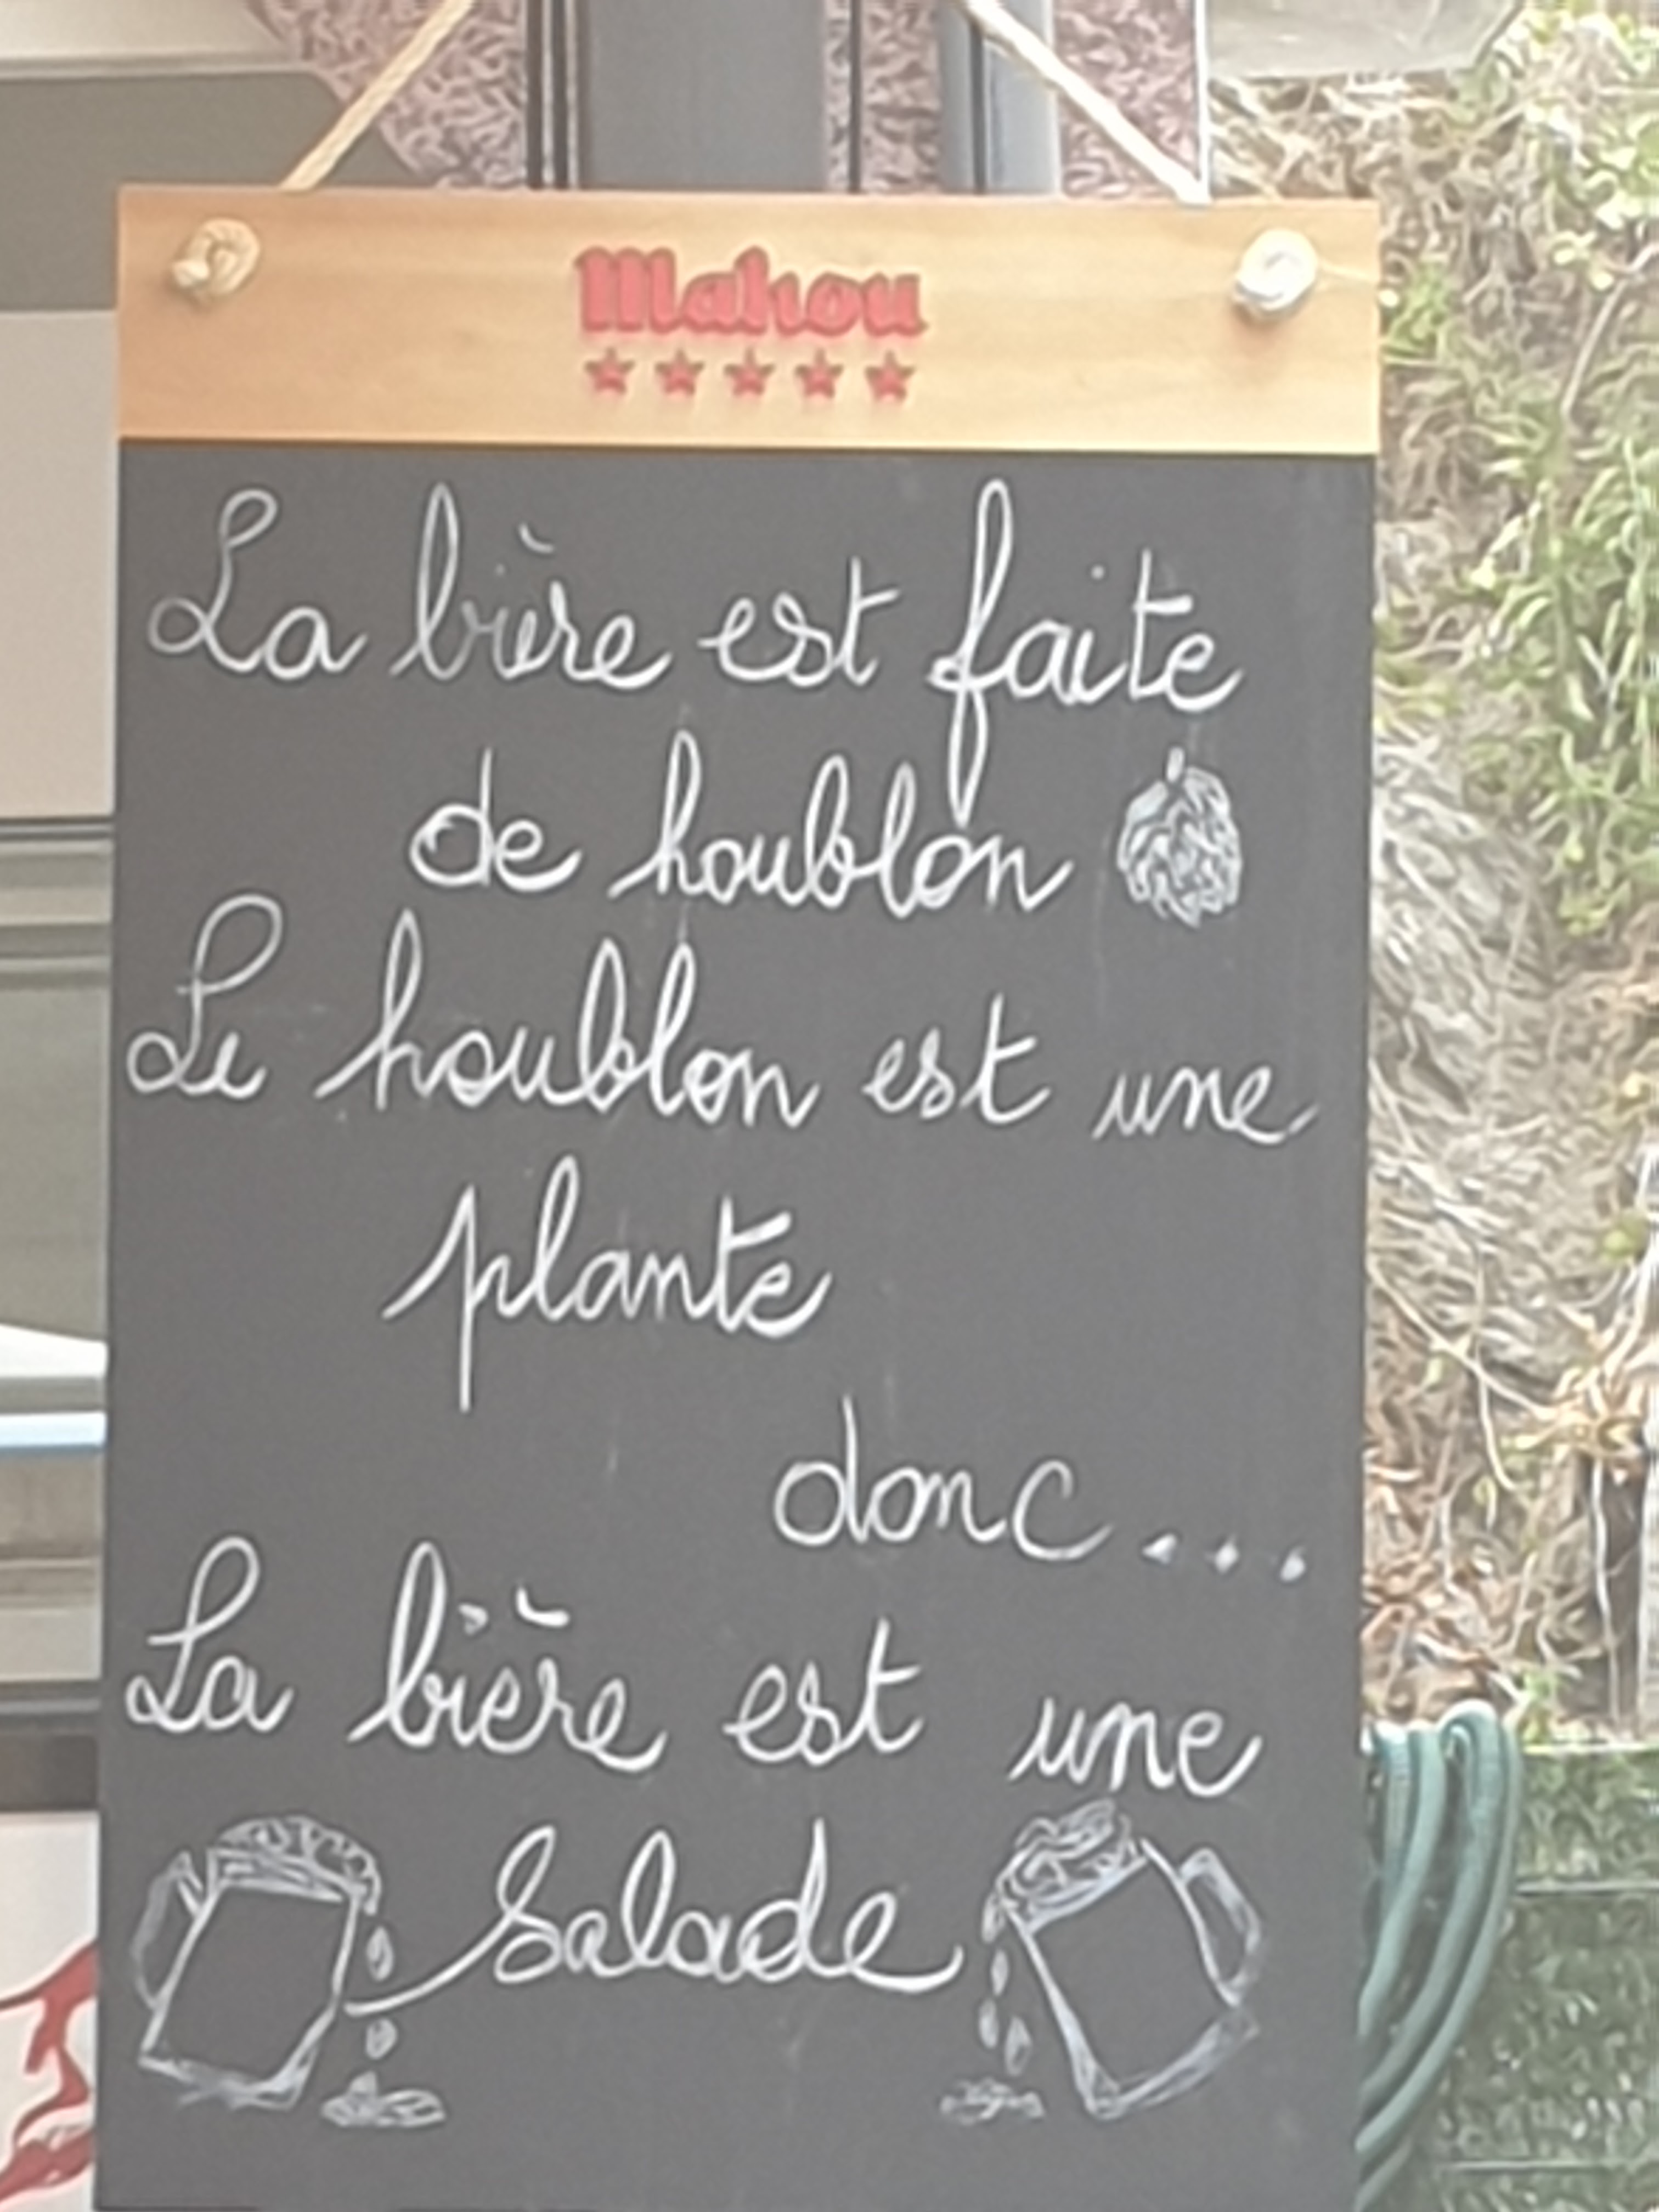 Mahou
La bière est faite
de houblon
Le houblon est une
plante
donc...
La bière est une
salade